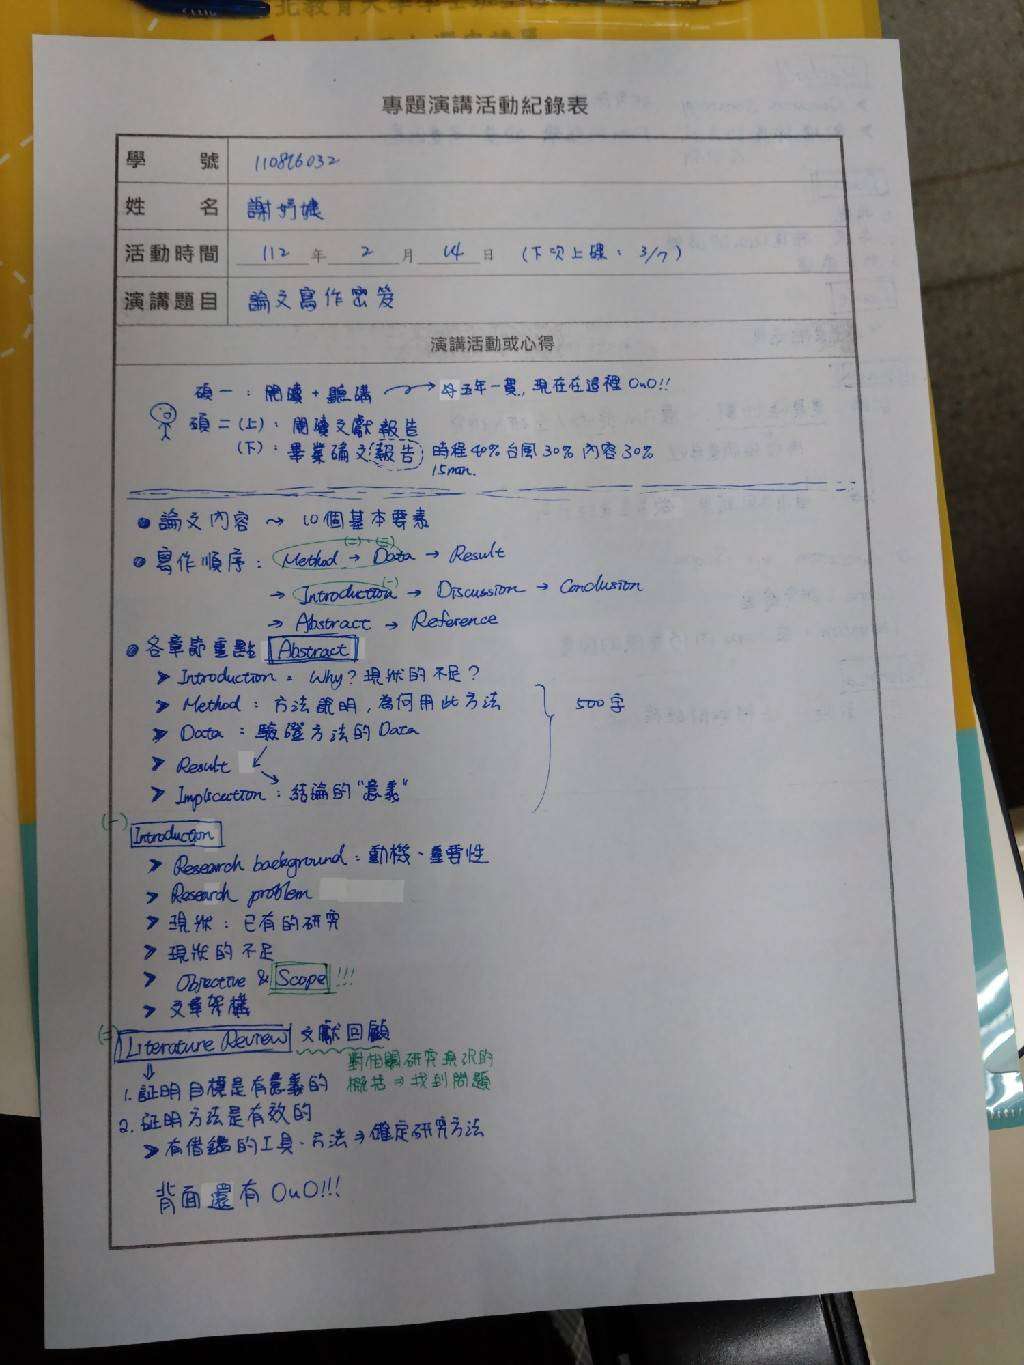 北教育大學學士班
專題演講活動紀錄表
學 號 110816032
姓 名 謝
活動時間 112 年 2 月 14 日 (下次上課: 3/7)
演講題目 論文寫作密笈
演講活動或心得
碩一: 閱讀 + 聽講 → 母五年一貫,, 現在在這裡 OuO!!
碩二(上): 閱讀文獻報告
(下): 畢業碖文報告 時程 40% 台風 30% 內容 30%
15min.
論文內容 ~> 10個基本要素
(二)、(三)
寫作順序: Method → Data → Result
(一)
→ Introduction → Discussion → Conclusion
→ Abstract → Reference
各章節重點 Abstract
> Introduction: Why? 現狀的不足?
> Method: 方法說明, 為何用此方法 500字
> Data: 驗證方法的 Data
> Result
> Implication: 結論的"意義"
(一) Introduction
> Research background: 動機、重要性
> Research problem
> 現狀: 已有的研究
> 現狀的不足
> Objective & Scope !!!
> 文章架構
(二) Literature Review 文獻回顧
對相關研究與沢的
1. 証明目標是有意義的 概括 ⇒ 找到問題
2. 証明方法是有效的
> 有借鑑的工具、方法 ⇒ 確定研究方法
背面還有 OuO!!!